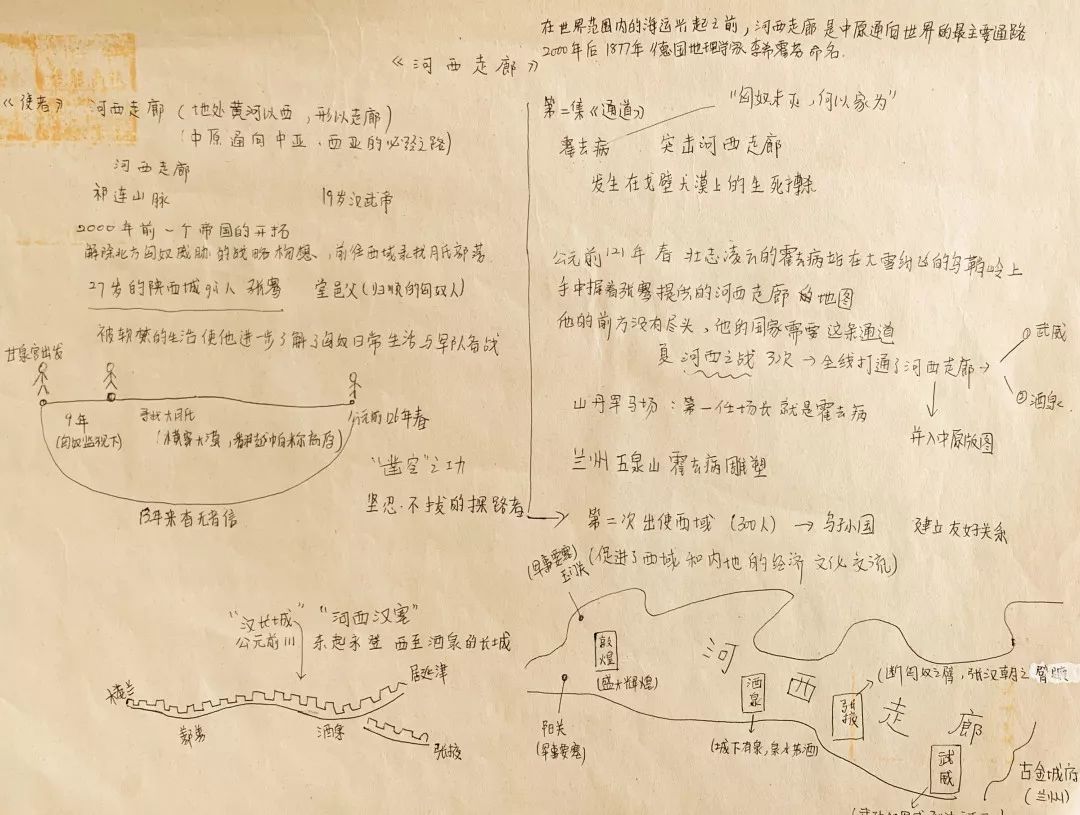 在世界范围内的海运兴起之前，河西走廊是中原通向世界的最主要通路
2000年后1877年德国地理学家李希霍芬命名.
《河西走廊》
《使者》
河西走廊（地处黄河以西，形以走廊）
（中原通向中亚、西亚的必经之路）
河西走廊
祁连山脉
19岁汉武帝
2000年前一个帝国的开拓
解除北方匈奴威胁的战略构想、前往西域寻找月氏部落
27岁的陕西城固人 张骞
堂邑父（归顺的匈奴人）
被软禁的生活使他进一步了解了匈奴日常生活与军队备战
甘泉宫出发
9年
（匈奴监视下）
寻找大月氏
（横穿大漠，翻越帕米尔高原）
公元前126年春
13年来杳无音信
"凿空"之功
坚忍.不拔的探路者
第二集《通道》
"匈奴未灭，何以家为"
霍去病
突击河西走廊
发生在戈壁大漠上的生死搏杀
公元前121年 春 壮志凌云的霍去病站在大雪纷飞的乌鞘岭上
手中握着张骞提供的河西走廊的地图
他的前方没有尽头，他的国家需要这条通道
夏 河西之战 3次 → 全线打通了河西走廊 →
① 武威
② 酒泉
并入中原版图
山丹军马场：第一任场长就是霍去病
兰州 五泉山 霍去病雕塑
第二次出使西域（300人）→ 乌孙国 建立友好关系
（促进了西域和内地的经济 文化交流）
"汉长城" "河西汉塞"
公元前111 东起永登 西至酒泉的长城
楼兰
居延津
酒泉
张掖
（军事要塞）
玉门关
敦煌
（盛大辉煌）
阳关
（军事要塞）
河西走廊
酒泉
（城下有泉，泉水若酒）
张掖
（断匈奴之臂，张汉朝之臂腋
武威
古金城府
（兰州）